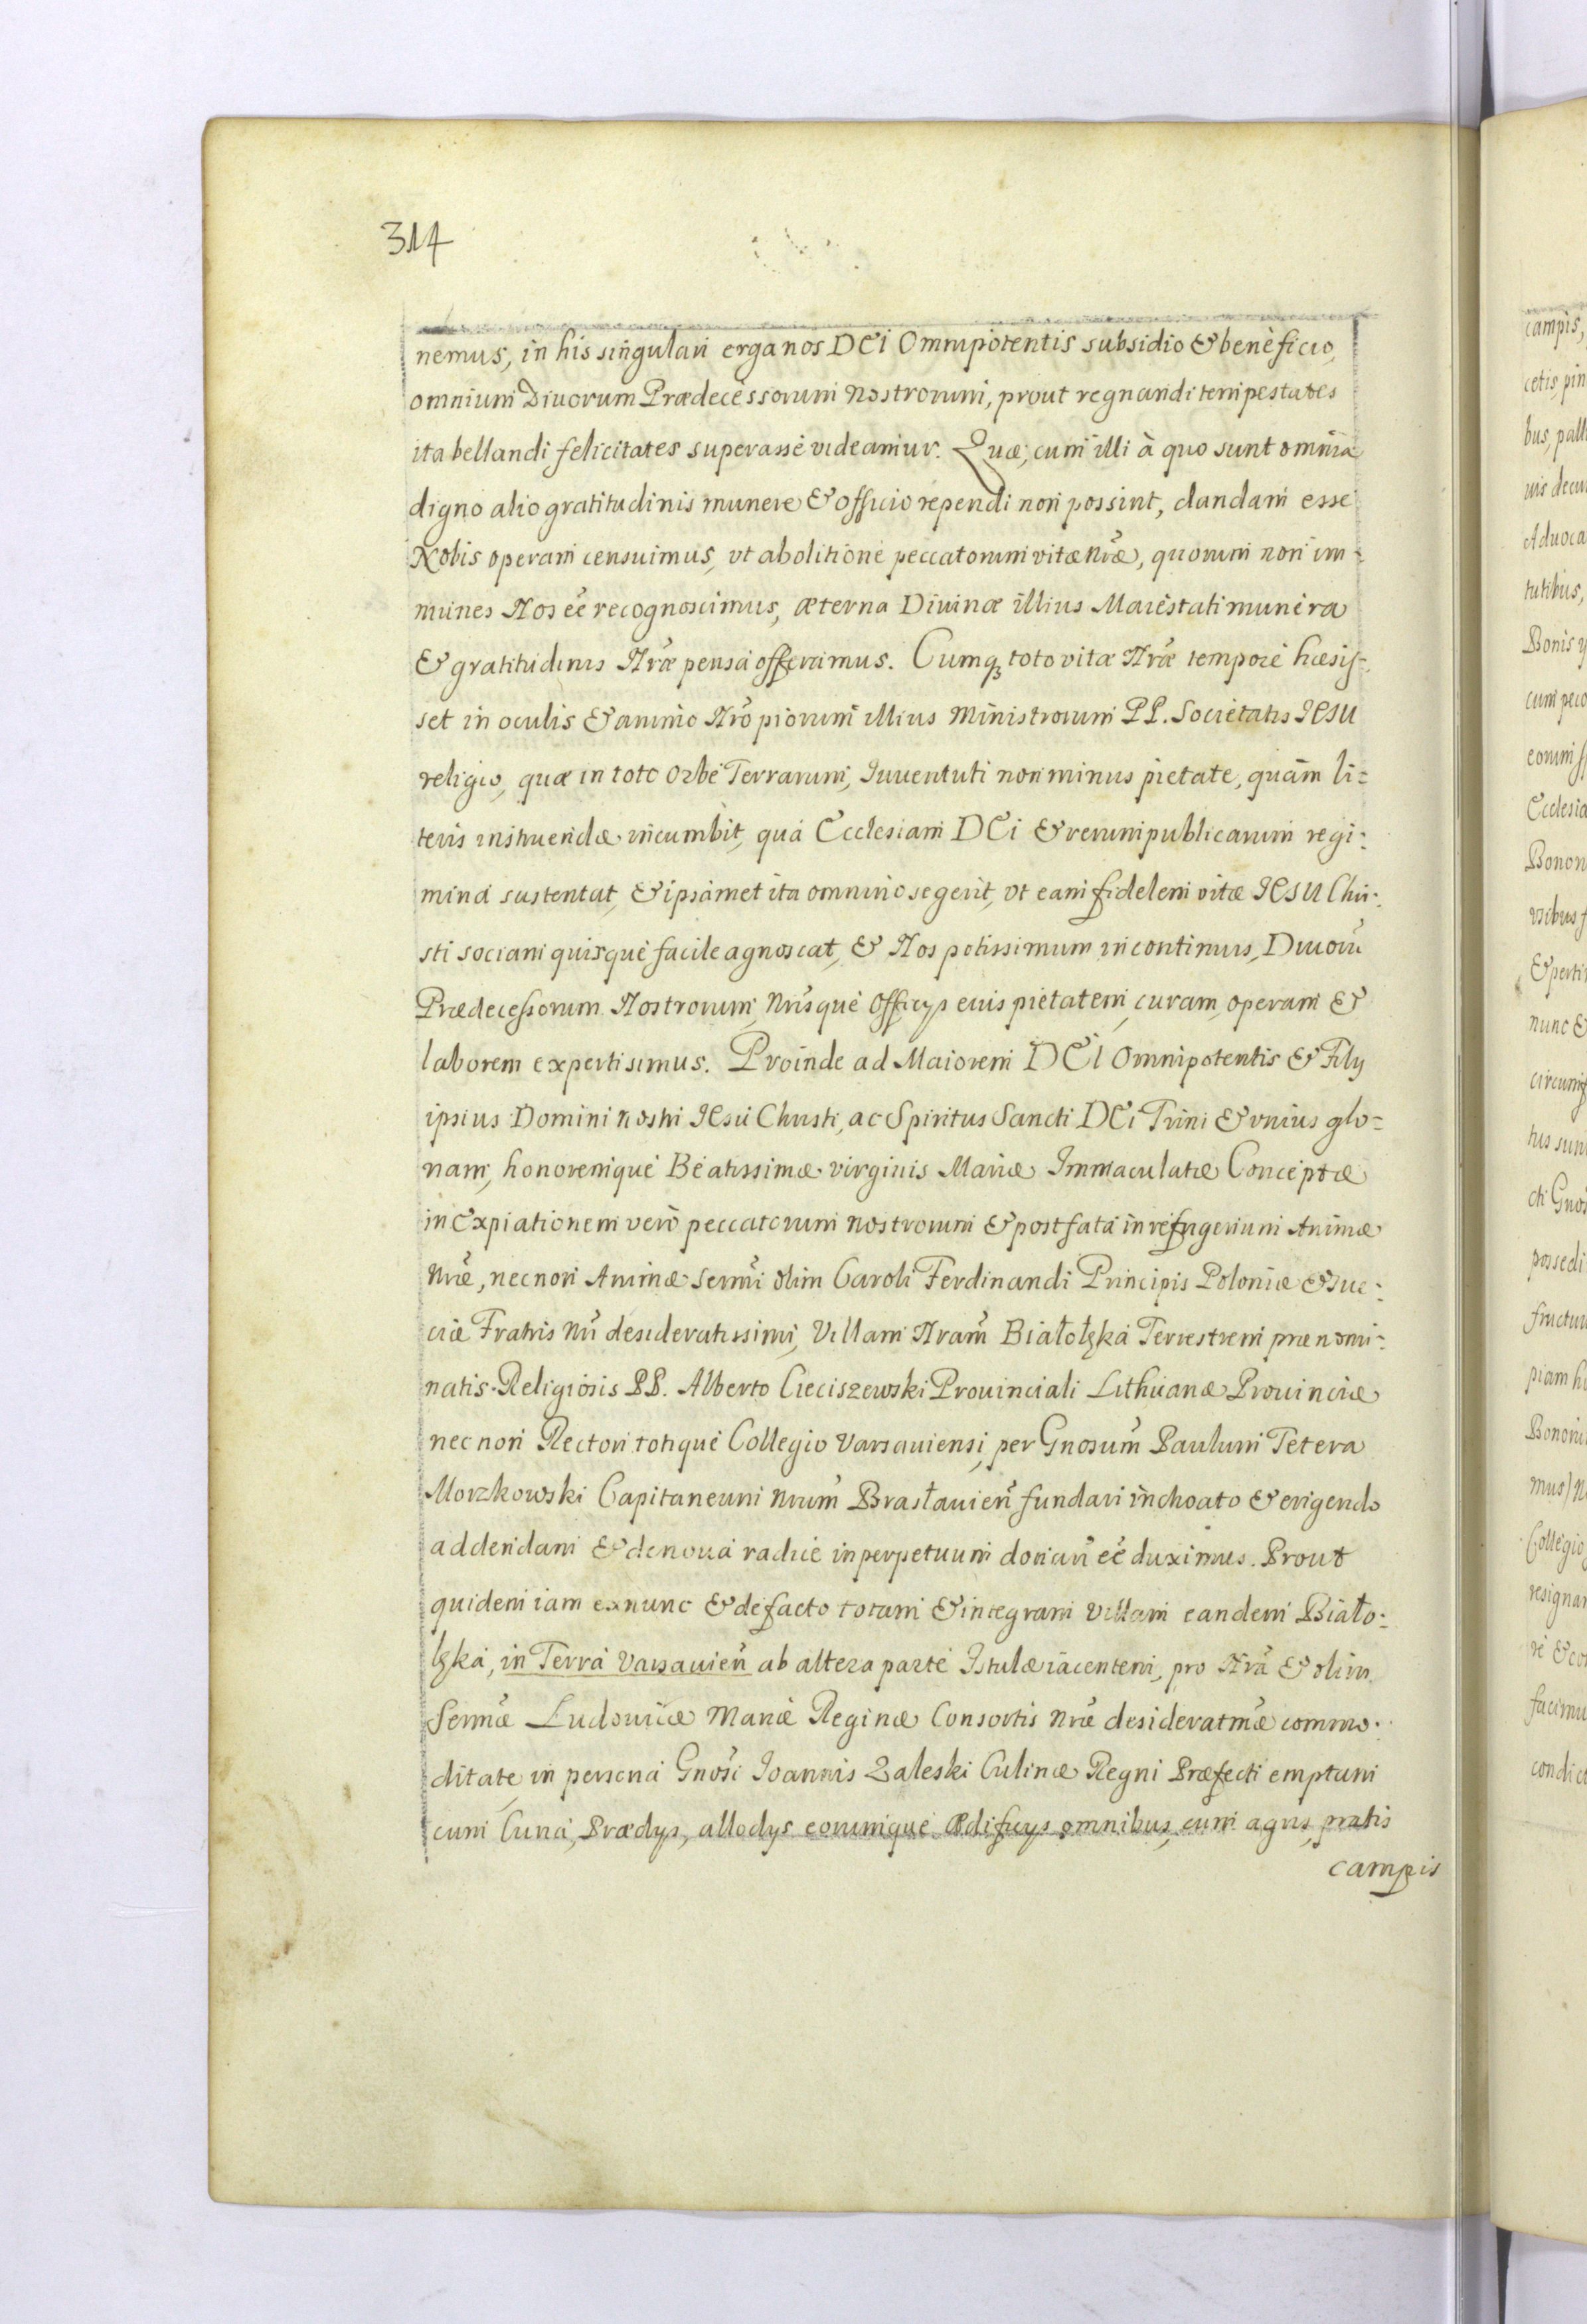 314
nemus, in his singulari erga nos DEI Omnipotentis subsidio & beneficio,
omnium Diuorum Prædecessorum Nostrorum, prout regnandi tempestates
ita bellandi felicitates superasse videamur. Quæ, cum illi à quo sunt omnia
digno alio gratitudinis munere & officio rependi non possint, dandam esse
Nobis operam censuimus, vt abolitione peccatorum vitæ nr̃æ, quorum non im-
munes Nos eẽ recognoscimus, æterna Diuinæ illius Maiestati munera
& gratitudinis Nr̃æ pensa offeramus. Cumq3 toto vitæ Nr̃æ tempore hæsis-
set in oculis & animo Nr̃o piorum illius Ministrorum PP. Societatis IESU
religio, quæ in toto Orbe Terrarum, Iuuentuti non minus pietate, quàm li=
teris instruendæ incumbit, quâ Ecclesiam DEi & rerumpublicarum regi-
mina sustentat, & ipsamet ita omnino se gerit, vt eam fidelem vitæ IESU Chri-
sti sociam quisque facile agnoscat, & Nos potissimum in continuis, Diuorũ
Prædecessorum Nostrorum, Nr̃isque Officys eius pietatem, curam, operam &
laborem experti simus. Proinde ad Maiorem DEI Omnipotentis & Fily
ipsius Domini Nostri IEsu Christi, ac Spiritus Sancti DEi Trini & vnius glo=
riam, honoremque Beatissimæ virginis Mariæ Immaculatæ Conceptæ
in Expiationem verò peccatorum nostrorum & post fata in refrigerium Animæ
Nr̃æ, necnon Animæ Serm̃i olim Caroli Ferdinandi Principis Poloniæ & Sue-
ciæ Fratris Nr̃i desideratissimi, Villam Nram̃ Białołęka Terrestrem prænomi-
natis Religiosis PP. Alberto Cieciszewski Prouinciali Lithuanæ Prouinciæ
nec non Rectori totique Collegio Varsauiensi, per Gnosum̃ Paulum Tetera
Morzkowski Capitaneum Nrum̃ Brasłauieñ fundari inchoato & erigendo
addendam & de noua radice in perpetuum donan̄ eẽ duximus. Prout
quidem iam exnunc & de facto totam & integram Villam eandem Biało-
łęka, in Terra Varsauieñ ab altera parte Istulæ iacentem, pro Nr̃a & olim
Serm̃æ Ludouicæ Mariæ Reginæ Consortis Nr̃æ desideratm̃æ commo-
ditate, in persona Gnosi Ioannis Zaleski Culinæ Regni Præfecti emptam
cum Curia, Prædys, allodys eorumque Ædificys omnibus, cum agris, pratis
campis
campis,
Aduoca
tutibus,
Bonis
Ecclesia
Bonon
nunc &
tus sunt
possedi
piam
Collegio